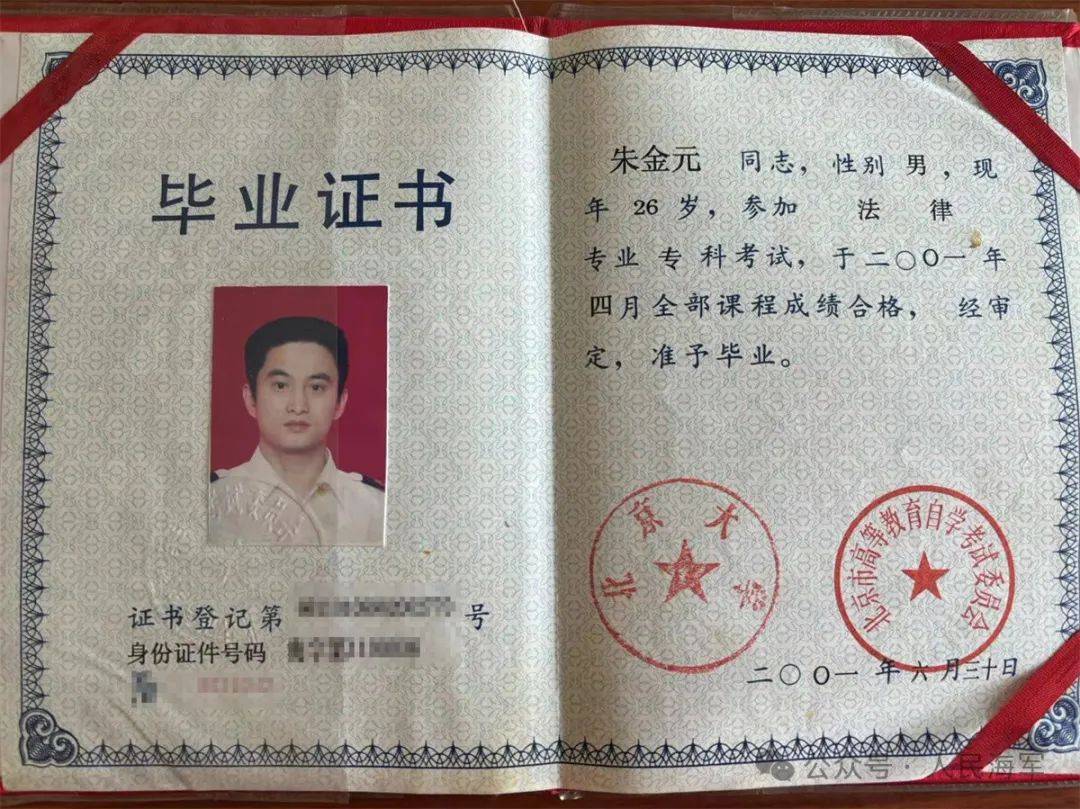 毕业证书
证书登记第 号
身份证件号码
朱金元 同志，性别 男，现
年 26 岁，参加 法 律
专业 专 科考试，于二〇〇一年
四月全部课程成绩合格， 经审
定， 准予毕业。
北京大学
北京市高等教育自学考试委员会
二〇〇一年六月三十日
公众号·人民海军